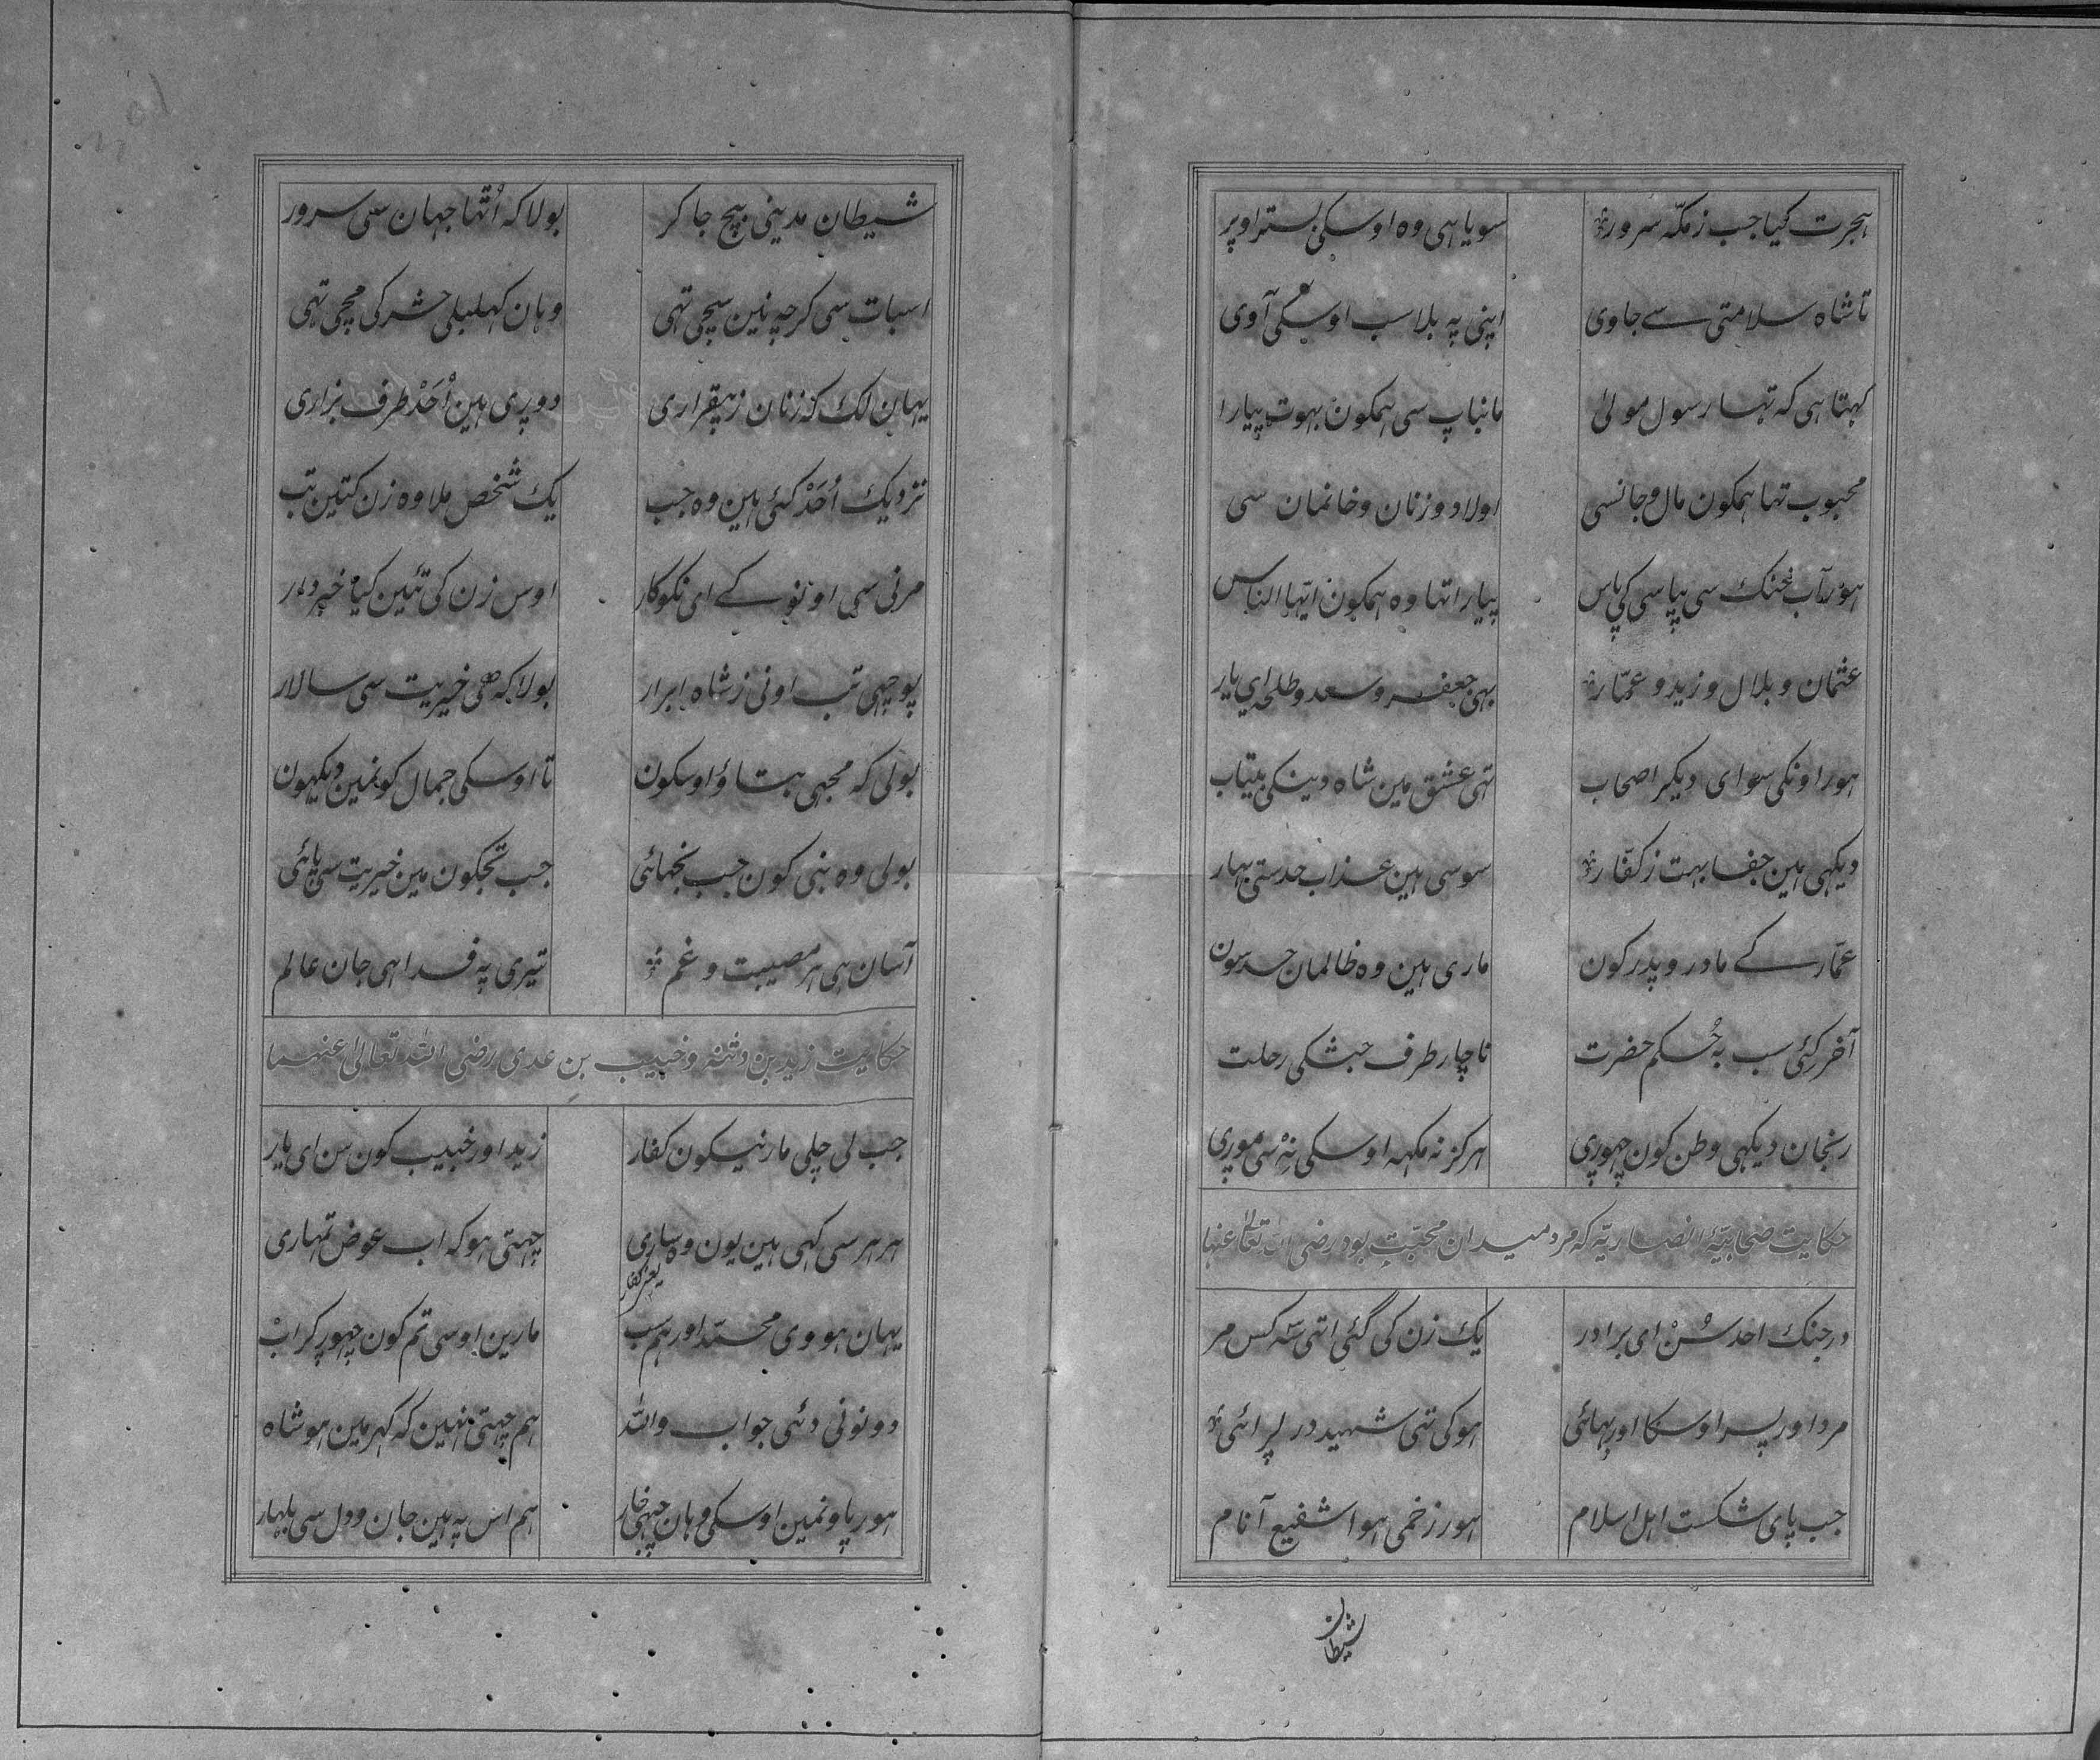 ہجرت کیا جب ز مکّہ سرور سویا ہی وہ اوسکی بستر اوپر
تا شاہ سلامتی سے جاوی اپنی پہ بلا سب اوسکی آوی
کہتا ہی کہ تھا رسول مولیٰ مانباپ سی ہمکون بہوت پیارا
محبوب تھا ہمکون مال و جانسی اولاد و زنان و خانمان سی
ہور آب خنک سی پیاسی کی پاس پیارا تھا وہ ہمکون ایّہا الناس
عثمان و بلال و زید و عمّار بہی جعفر و سعد و طلحہ ای یار
ہور اونکی سوای دیکر اصحاب تہی عشق مین شاہ دینکی بیتاب
دیکہی ہین جفا بہت ز کفّار سوسی ہین عذاب حدستی بہار
عمّار کے مادر و پدر کون ماری ہین وہ ظالمان حسدسون
آخر کئی سب بہ حُکم حضرت ناچار طرف حبشکی رحلت
رنجان دیکہی وطن کون چہوری ہرکز نہ مکہہ اوسکی نہ سی موری
حکایت صحابیّۂ انصاریّہ کہ مرد میدان محبّت بود رضی اللہ تعالیٰ عنہا
در جنک احد سُنْ ای برادر یک زن کی گئی اتہی سہ کس مر
مرد اور پسر اوسکا اور بہائی ہوکی تہی شہید در لرائی
جب پای شکست اہل اسلام ہور زخمی ہوا شفیع آنام
شیطان
شیطان مدینی بیچ جا کر بولا کہ اُتّھا جہان سی سرور
اسبات سی کرچہ نین سچی تہی وہان کہلبلی حشر کی مچی تہی
یہان لک کہ زنان ز بیقراری دوری ہین اُحَدْ طرف بزاری
نزدیک اُحَدْ کئی ہین وہ جب یک شخص ملا وہ زن کتین تب
مرنی سی اونو کے ای نکوکار اوس زن کی تئین کیا خبردار
پوچہی تب اونی ز شاہ ابرار بولا کہ ہی خیریت سی سالار
بولی کہ مجہی بتاؤ اوسکون تا اوسکی جمال کو نمین دیکہون
بولی وہ نبی کون جب نجہائی جب تجکون مین خیریت سی پائی
آسان ہی ہر مصیبت و غم تیری پہ فدا ہی جان عالم
حکایت زید بن دثنہ و خبیب بن عدی رضی اللہ تعالیٰ عنہما
جب لی چلی مارنیکون کفار زید اور خبیب کون سن ای یار
ہر ہر سی کہی ہین یون وہ ساری چہتی ہو کہ اب عوض تمہاری
یعنی کفار
یہان ہووی محمّد اور ہم سب مارین اوسی تم کون چہور کر اب
دونونی دئی جواب واللہ ہم چہتی نہین کہ کہر مین ہو شاہ
ہور پاونمین اوسکی وہان چبہی خار ہم اس پہ ہین جان و دل سی بلہار